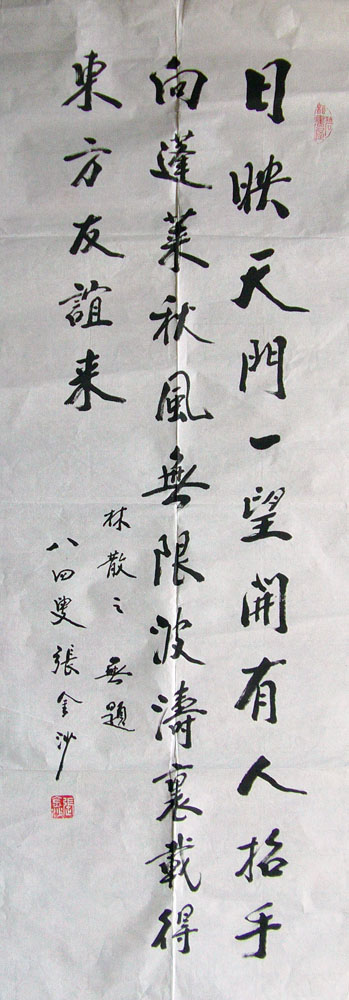 日映天門一望開有人招手
向蓬萊秋風無限波濤裏載得
東方友誼来
林散之 無題
八四叟張金沙